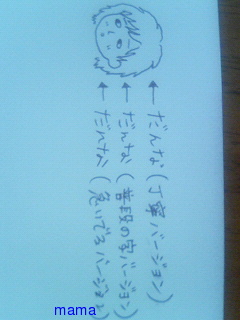 ← だんな(丁寧バージョン)
← だんな(普段の字バージョン)
← だんな(急いでるバージョン)
mama